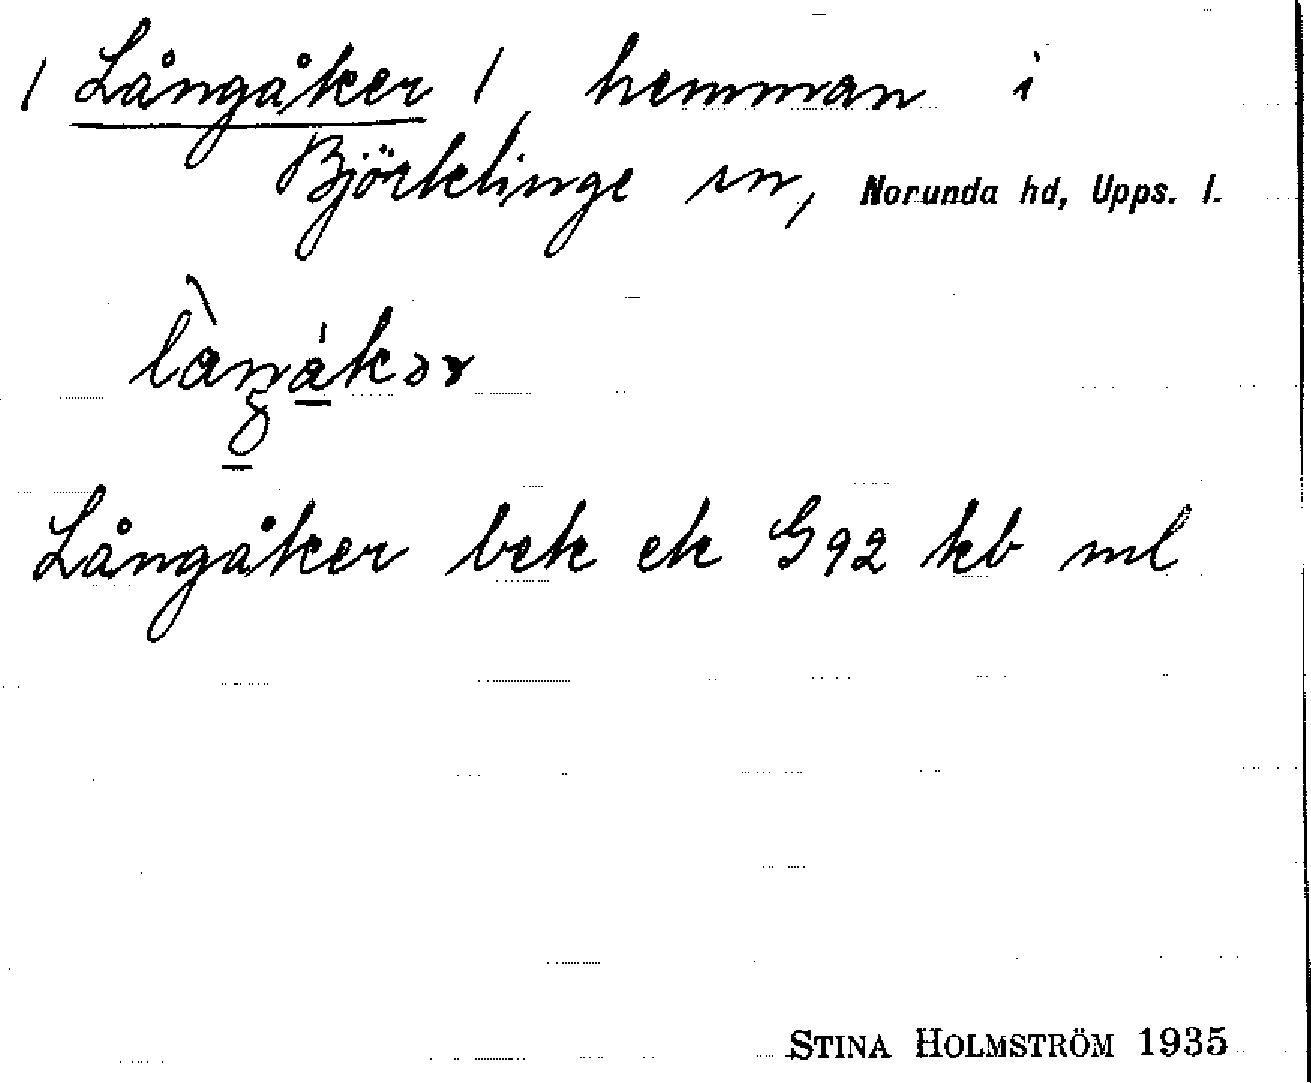 / Långåker /, hemman i
Björklinge sn, Norunda hd, Upps. l.
Långåker bek ek G92 kb ml
STINA HOLMSTRÖM 1935